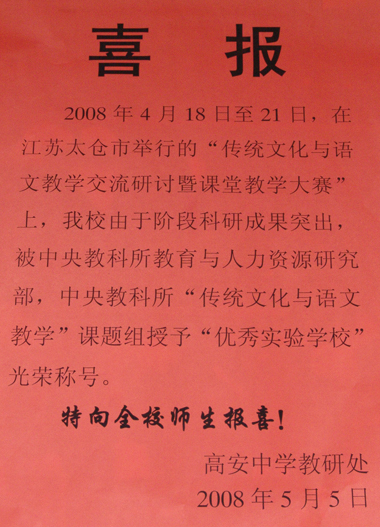 喜 报
2008 年 4 月 18 日至 21 日，在
江苏太仓市举行的“传统文化与语
文教学交流研讨暨课堂教学大赛”
上，我校由于阶段科研成果突出，
被中央教科所教育与人力资源研究
部，中央教科所“传统文化与语文
教学”课题组授予“优秀实验学校”
光荣称号。
特向全校师生报喜！
高安中学教研处
2008 年 5 月 5 日